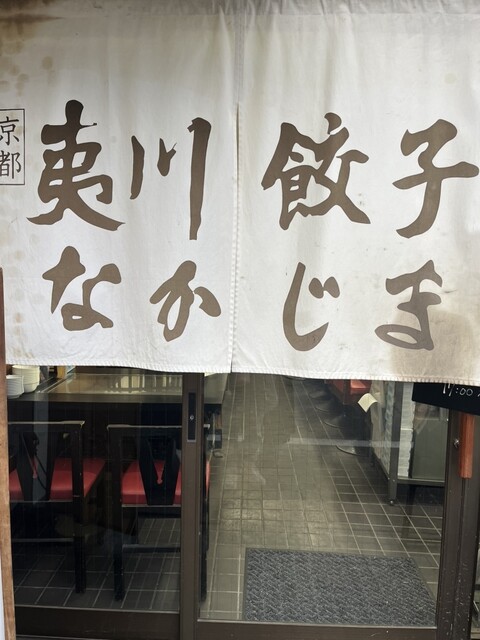 京都
夷川 餃子
なかじま
17:00